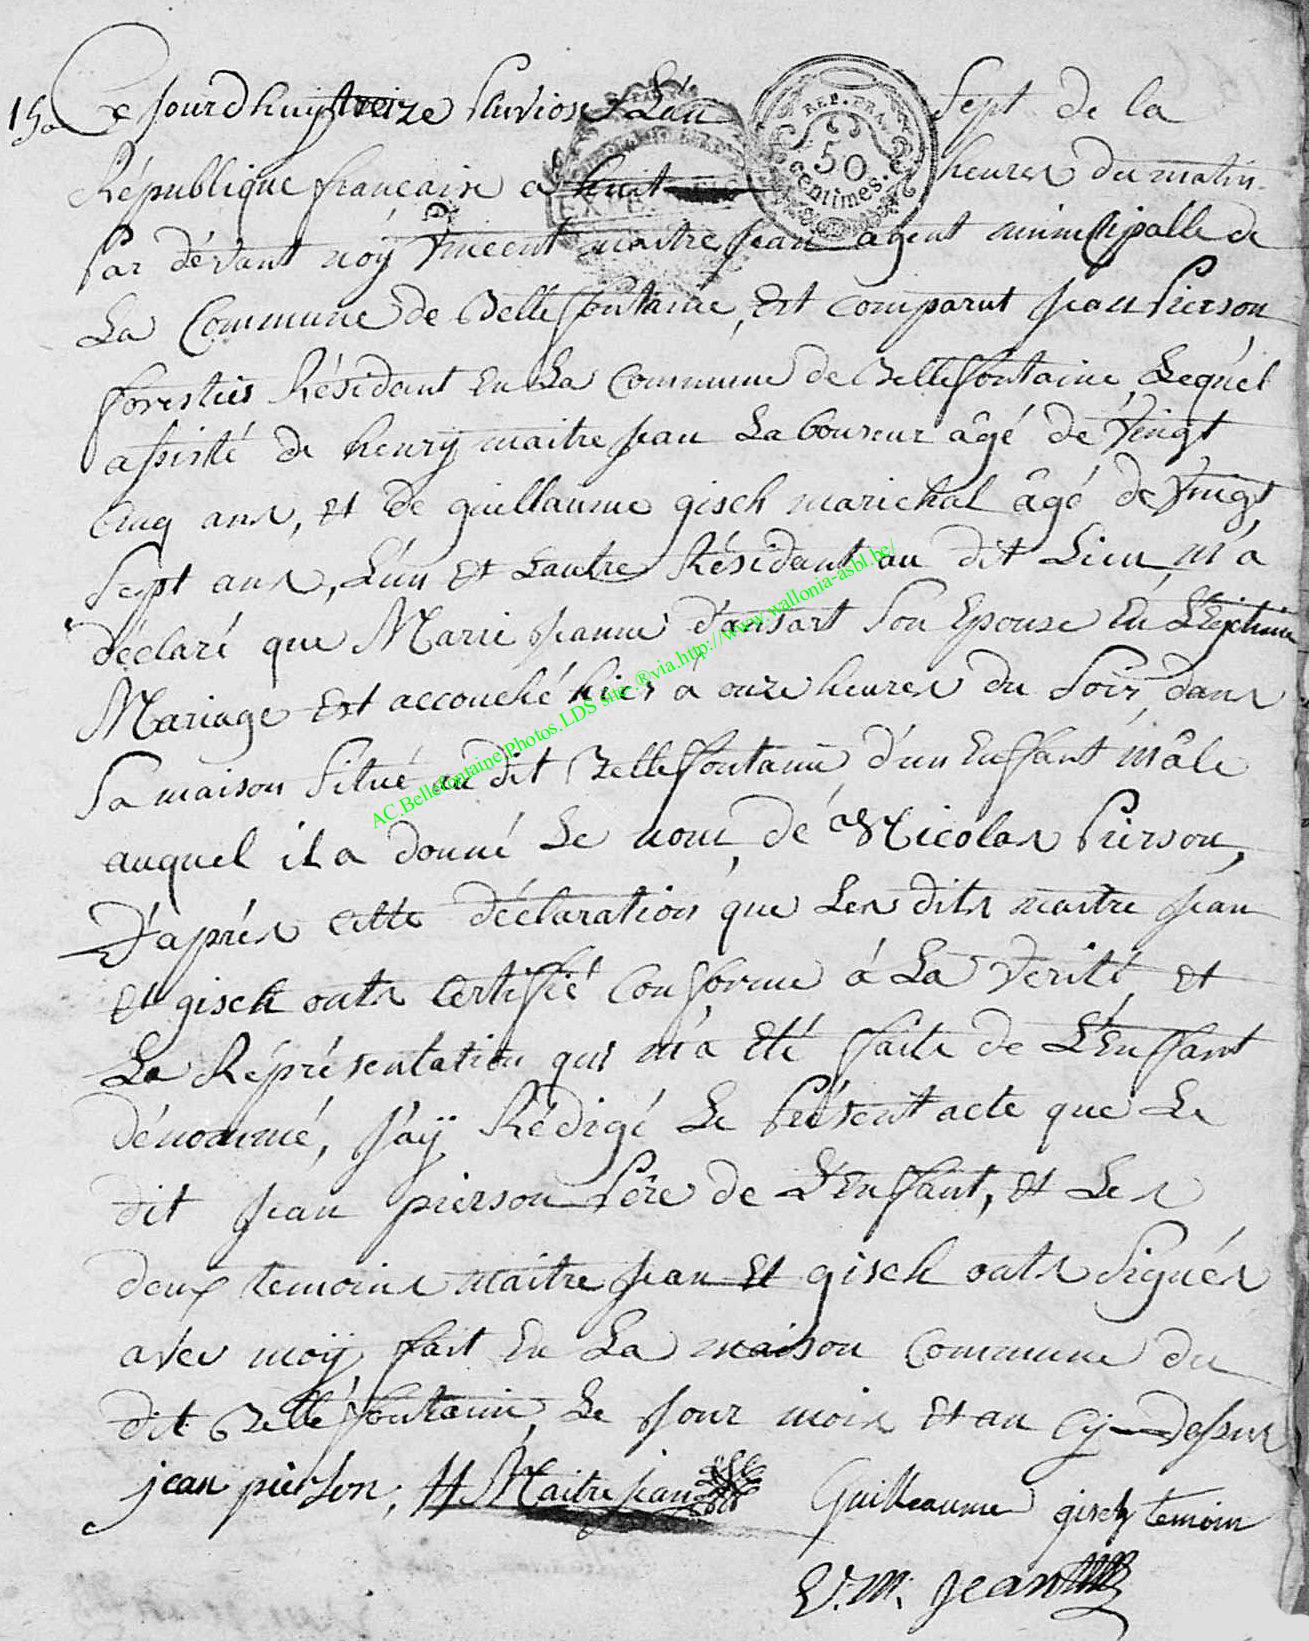 15
Ce Jourdhuy treize Pluviose L'an Sept de la
REP. FRA.
50
centimes.
République française a huit heures du matin
Par dévant moÿ Vincent maitre Jean agent municipalle de
La Commune de Bellefontaine, Est comparut Jean Pierson
forestier Résidant En La Commune de Bellefontaine, Lequel
assisté de henrÿ maitre Jean Laboureur âgé de Vingt
Cinq ans, Et de guillaume gisch marichal âgé de Vingt
Sept ans, L'un Et Lautre Résidant au dit Lieu, m'a
déclaré que Marie Jeanne d'ansart Son Epouse En Légitime
Mariage Est accouché hier á onze heures du Soir, dans
Sa maison Situé au dit Bellefontaine d'un Enffant mâle
auquel il a donné Le nom de Nicolas Pierson,
D'aprés cette déclaration que Les dits maitre Jean
Et gisch onts Certiffié Conforme á La Verité, Et
La Réprésentation qui m'a Eté faite de L'Enffant
dénommé, J'aÿ Rédigé Le Présent acte que Le
dit Jean pierson Pére de L'Enffant, Et Les
deux temoins maitre Jean Et gisch onts Signés
avec moÿ, fait En La maison Commune du
dit Bellefontaine, Le Jour mois Et an Cÿ-Dessus
jean pierson, H Maitre jean Guilleaume gisch temoin
V. M. jean
AC.Bellefontaine.Photos.LDS site.®via.http://www.wallonia-asbl.be/